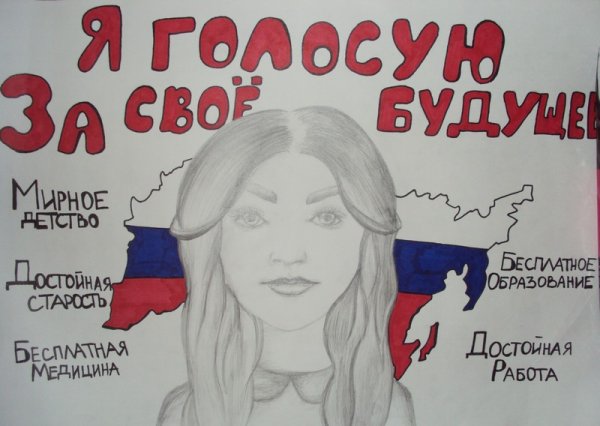 Я ГОЛОСУЮ
ЗА СВОЁ БУДУЩЕЕ
МИРНОЕ
ДЕТСТВО
ДОСТОЙНАЯ
СТАРОСТЬ
БЕСПЛАТНАЯ
МЕДИЦИНА
БЕСПЛАТНОЕ
ОБРАЗОВАНИЕ
ДОСТОЙНАЯ
РАБОТА